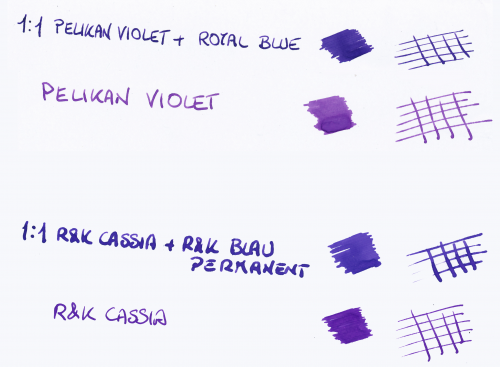 1:1 PELIKAN VIOLET + ROYAL BLUE
PELIKAN VIOLET
1:1 R&K CASSIA + R&K BLAU
PERMANENT
R&K CASSIA